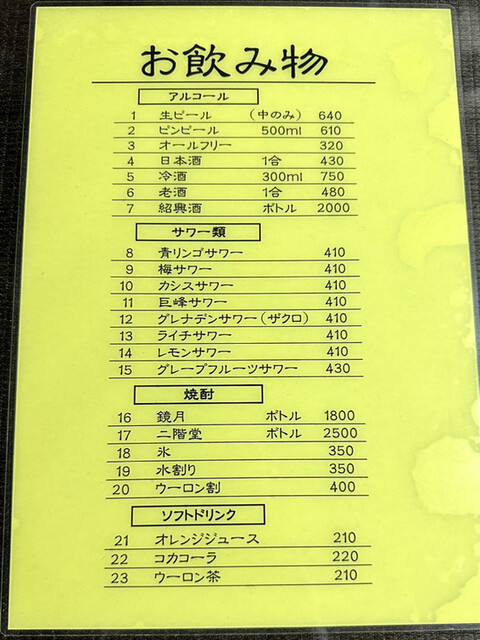 お飲み物
アルコール
1 生ビール (中のみ) 640
2 ビンビール 500ml 610
3 オールフリー 320
4 日本酒 1合 430
5 冷酒 300ml 750
6 老酒 1合 480
7 紹興酒 ボトル 2000
サワー類
8 青リンゴサワー 410
9 梅サワー 410
10 カシスサワー 410
11 巨峰サワー 410
12 グレナデンサワー(ザクロ) 410
13 ライチサワー 410
14 レモンサワー 410
15 グレープフルーツサワー 430
焼酎
16 鏡月 ボトル 1800
17 二階堂 ボトル 2500
18 氷 350
19 水割り 350
20 ウーロン割 400
ソフトドリンク
21 オレンジジュース 210
22 コカコーラ 220
23 ウーロン茶 210